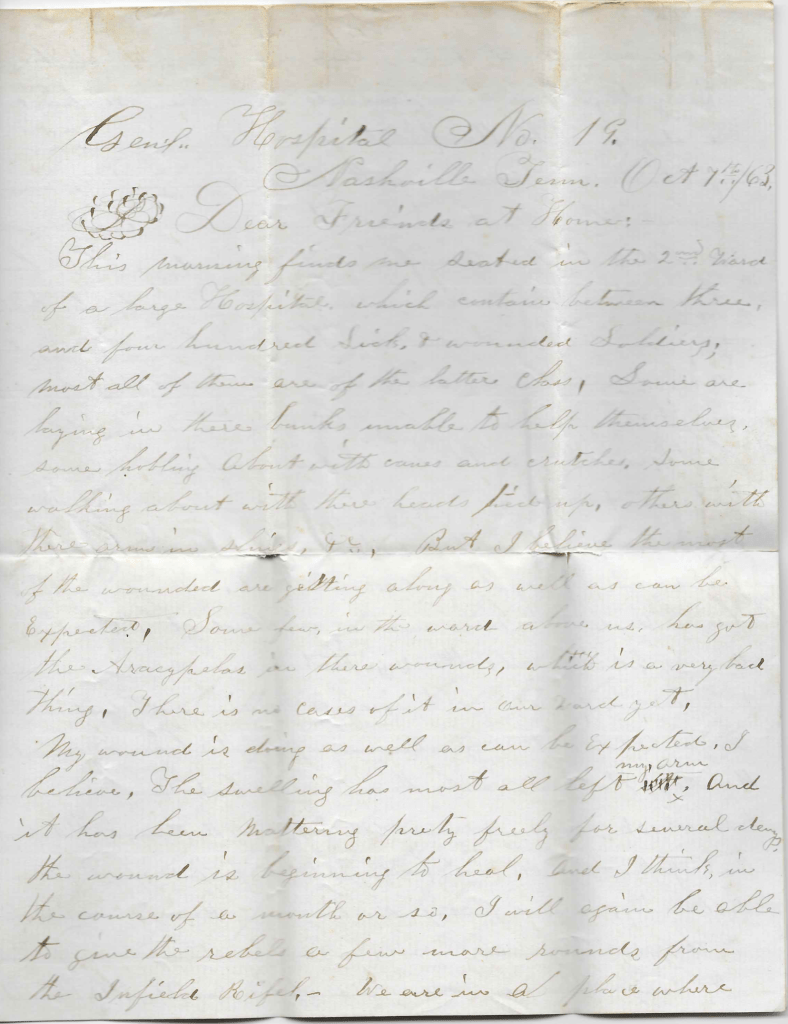 Genl. Hospital No. 19.
Nashville Tenn. Oct 7th/63,
Dear Friends at Home:-
This morning finds me seated in the 2nd Ward
of a large Hospital. which contain between three,
and four hundred Sick. & wounded Soldiers,
most all of them are of the latter class, Some are
laying in there bunks unable to help themselves,
some hobling about with canes and crutches. Some
walking about with there heads tied up, others with
there arm in slings, &c., But I believe the most
of the wounded are getting along as well as can be
Expected, Some few, in the ward above us. has got
the Aracypelas in there wounds, which is a very bad
thing, There is no cases of it in our ward yet,
My wound is doing as well as can be Expected, I
believe, The swelling has most all left my arm, And
it has been Mattering prety freely for several days,
the wound is beginning to heal, And I think, in
the course of a month or so, I will again be able
to give the rebels a few more rounds from
the Infield Rifel,- We are in a place where